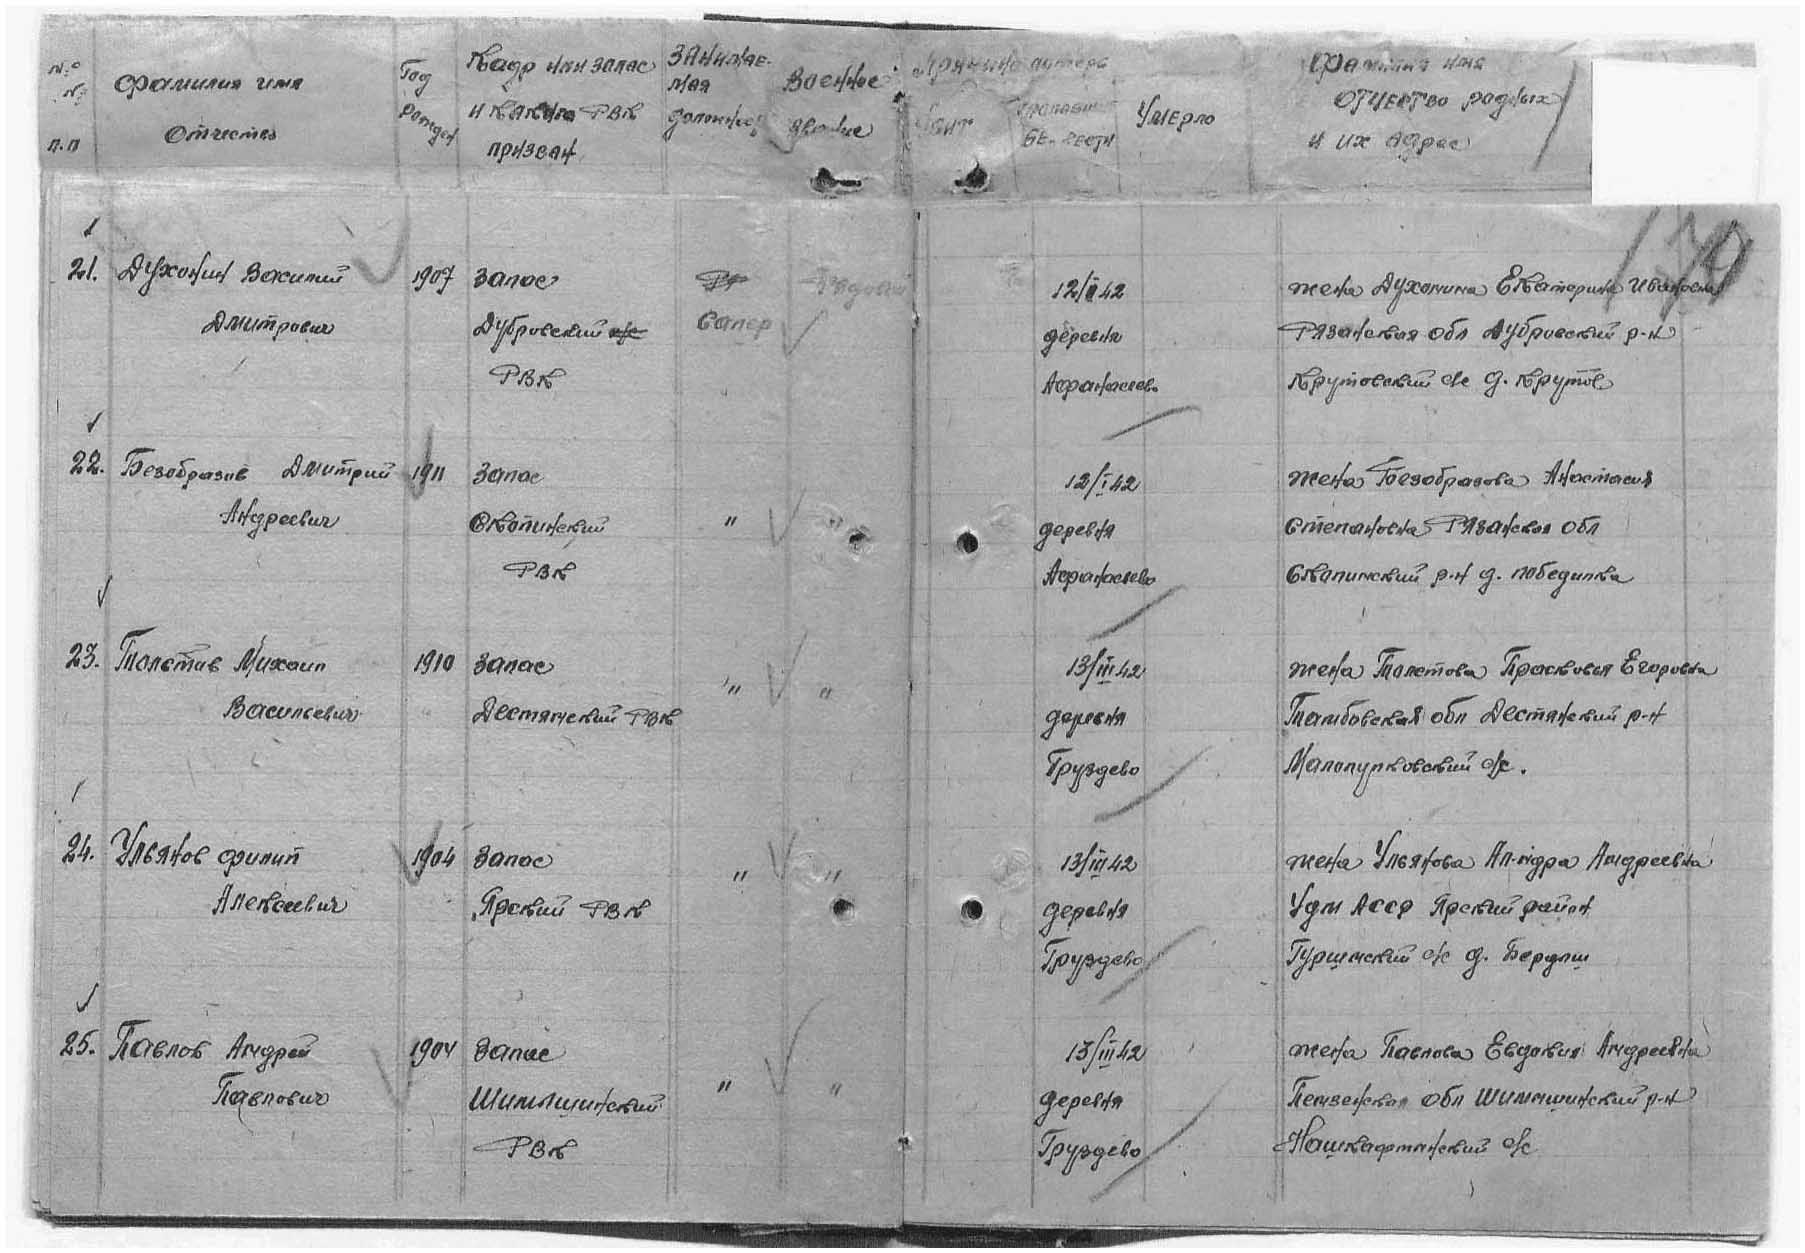 №№ п.п
Фамилия имя Отчество
Год рожден
Кадр или запас и каким РВК призван
Занимаемая должность
Военное звание
Причина потерь
Убит
пропавш без вести
Умерло
Фамилия имя отчество родных и их адрес
179
21. Духонин Василий 1907 запас Рядовой 12/II 42 жена Духонина Екатерина Ивановна
Дмитрович Дубровский с/с Сапер деревня Рязанская обл Дубровский р-н
РВК Афанасьево Крутовский с/с д. Крутое
22. Безобразов Дмитрий 1911 запас 12/I 42 жена Безобразова Анастасия
Андреевич Скопинский " деревня Степановна Рязанская обл
РВК Афанасьево Скопинский р-н д. победилка
23. Толстов Михаил 1910 запас " " 13/III 42 жена Толстова Прасковья Егоровна
Васильевич Дестянский РВК деревня Тамбовская обл Дестянский р-н
Груздево Малопурковский с/с.
24. Ульянов Филип 1904 запас " " 13/III 42 жена Ульянова Ал-ндра Андреевна
Алексеевич Ярский РВК деревня Удм АССР Ярский район
Груздево Гуршинский с/с д. Бердлш
25. Павлов Андрей 1904 запас 13/III 42 жена Павлова Евдокия Андреевна
Павлович Шимышинский " " деревня Пензенская обл Шимышинский р-н
РВК Груздево Нашкафтинский с/с